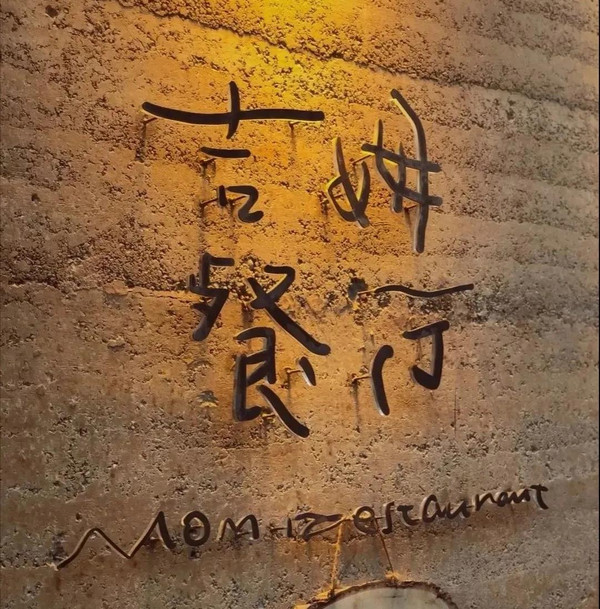 吉姆
餐厅
NAOMI Restaurant